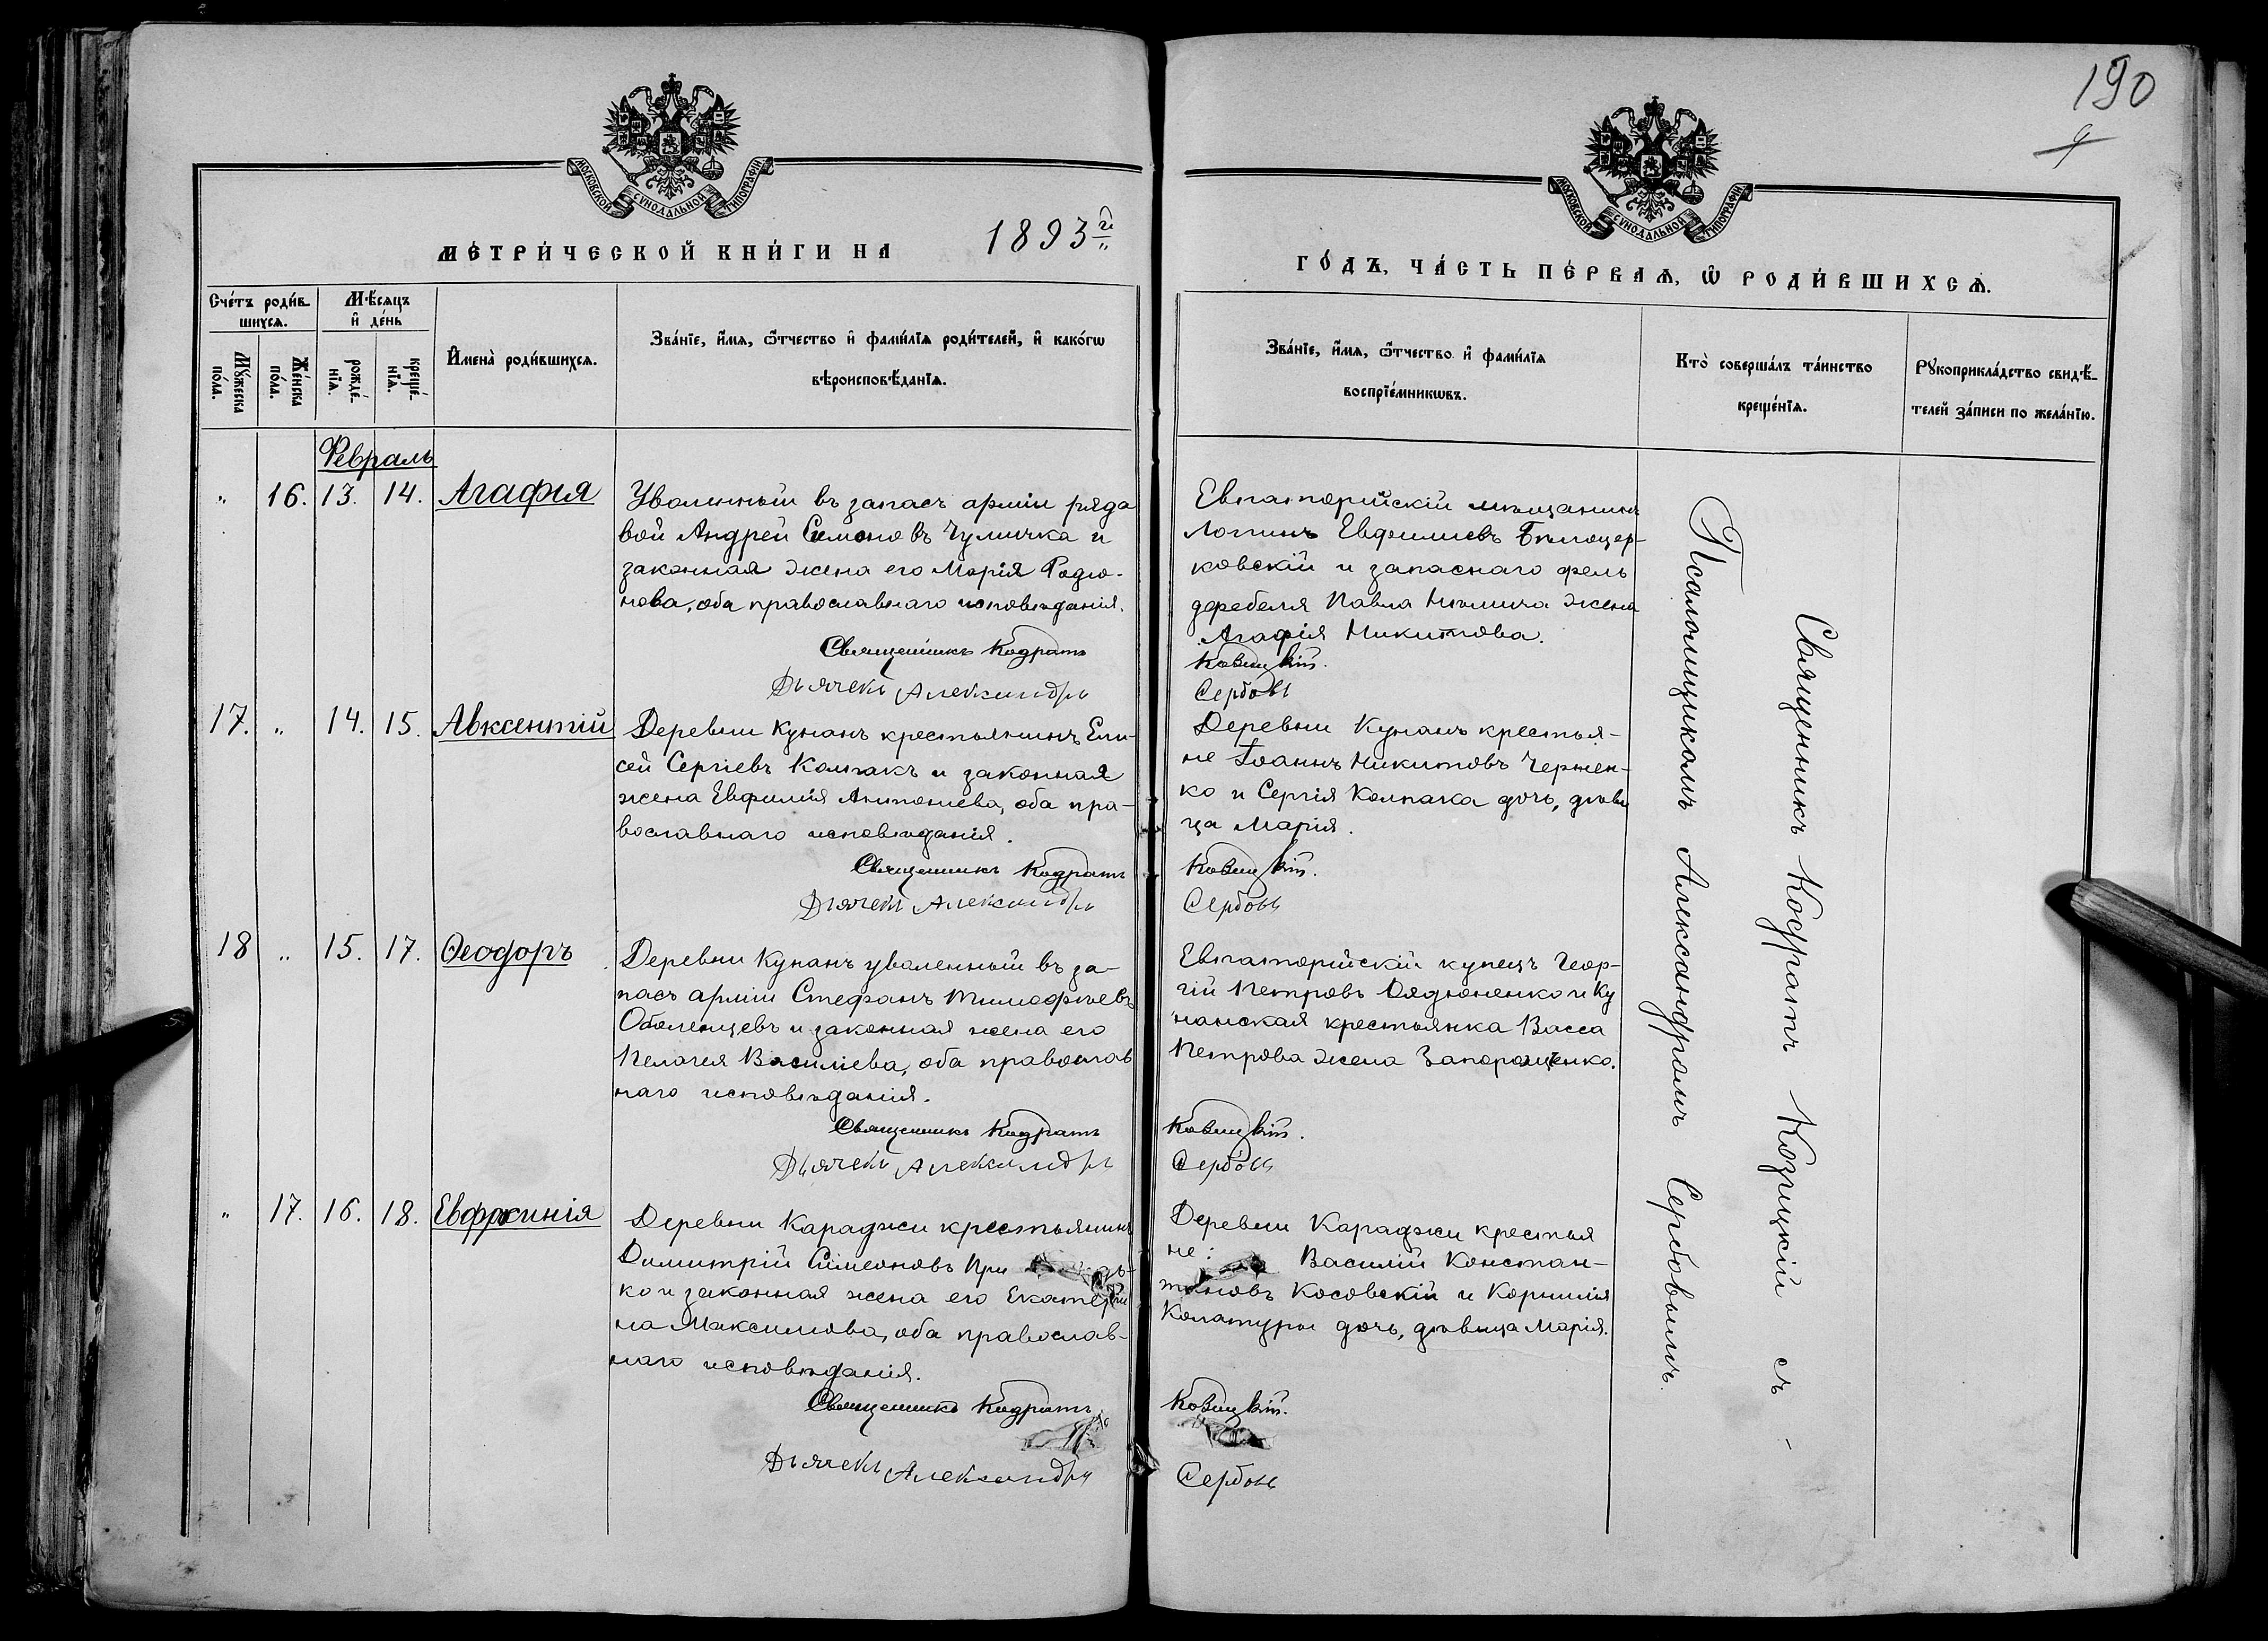 190
9
МОСКОВСКОЙ СУНОДАЛЬНОЙ ТИПОГРАФІИ
МОСКОВСКОЙ СУНОДАЛЬНОЙ ТИПОГРАФІИ
МЕТРИ́ЧЕСКОЙ КНИ́ГИ НА 1893 г.
ГО́ДЪ, ЧА́СТЬ ПЕ́РВАѦ, Ѡ РОДИ́ВШИХСѦ.
Сче́тъ роди́в-
шихсѧ.
Му́жеска по́ла.
Же́нска по́ла.
Мѣ́сѧцъ
и҆ де́нь
рожде́-
нїѧ.
креще́-
нїѧ.
И҆мена̀ роди́вшихсѧ.
Зва́нїе, и҆́мѧ, ѻ҆́тчество и҆ фами́лїѧ роди́телей, и҆ како́гѡ
вѣроисповѣ́данїѧ.
Зва́нїе, и҆́мѧ, ѻ҆́тчество и҆ фами́лїѧ
воспрїе́мникѡвъ.
Кто̀ соверша́лъ та́инство
креще́нїѧ.
Рꙋкоприкла́дство свидѣ́-
телей за́писи по жела́нїю.
Февраль
" 16. 13. 14. Агафія
Уволенный въ запасъ арміи рядо
вой Андрей Симоновъ Чуличка и
законная жена его Марія Родіо-
нова, оба православнаго исповѣданія.
Священникъ Кодратъ
Дьячекъ Александръ
Евпаторійскій мѣщанинъ
Логинъ Евфимиевъ Бѣлоцер-
ковскій и запаснаго фель
дфебеля Павла жена
Агафія Никитова.
Козицкій.
Сербовъ
17. " 14. 15. Авксентій
Деревни Кунанъ крестьянинъ Ели-
сей Сергіевъ Колпакъ и законная
жена Евфимія Антоніева, оба пра-
вославнаго исповѣданія.
Священникъ Кодратъ
Дьячекъ Александръ
Деревни Кунанъ крестья-
не Іоаннъ Никитовъ Чернен-
ко и Сергія Колпака дочь, дѣви
ца Марія.
Козицкій.
Сербовъ
18 " 15. 17. Ѳеодоръ
Деревни Кунанъ уволенный въ за-
пасъ арміи Стефанъ Тимофѣевъ
Оболенцевъ и законная жена его
Пелагея Василіева, оба православ
наго исповѣданія.
Священникъ Кодратъ
Дьячекъ Александръ
Евпаторійскій купецъ Геор-
гій Петровъ Дядюненко и Ку
нанская крестьянка Васса
Петрова жена Запорощенко.
Козицкій.
Сербовъ
" 17. 16. 18. Евфросинія
Деревни Караджи крестьянинъ
Димитрій Сімеоновъ При
ко и законная жена его Екатери
на Максимова, оба православ-
наго исповѣданія.
Священникъ Кодратъ
Дьячекъ Александръ
Деревни Караджи крестья
не: Василій Констан-
тиновъ Косовскій и Корнилія
Колатуры дочь, дѣвица Марія.
Козицкій.
Сербовъ
Священникъ Кодратъ Козицкій съ
Псаломщикомъ Александромъ Сербовымъ.